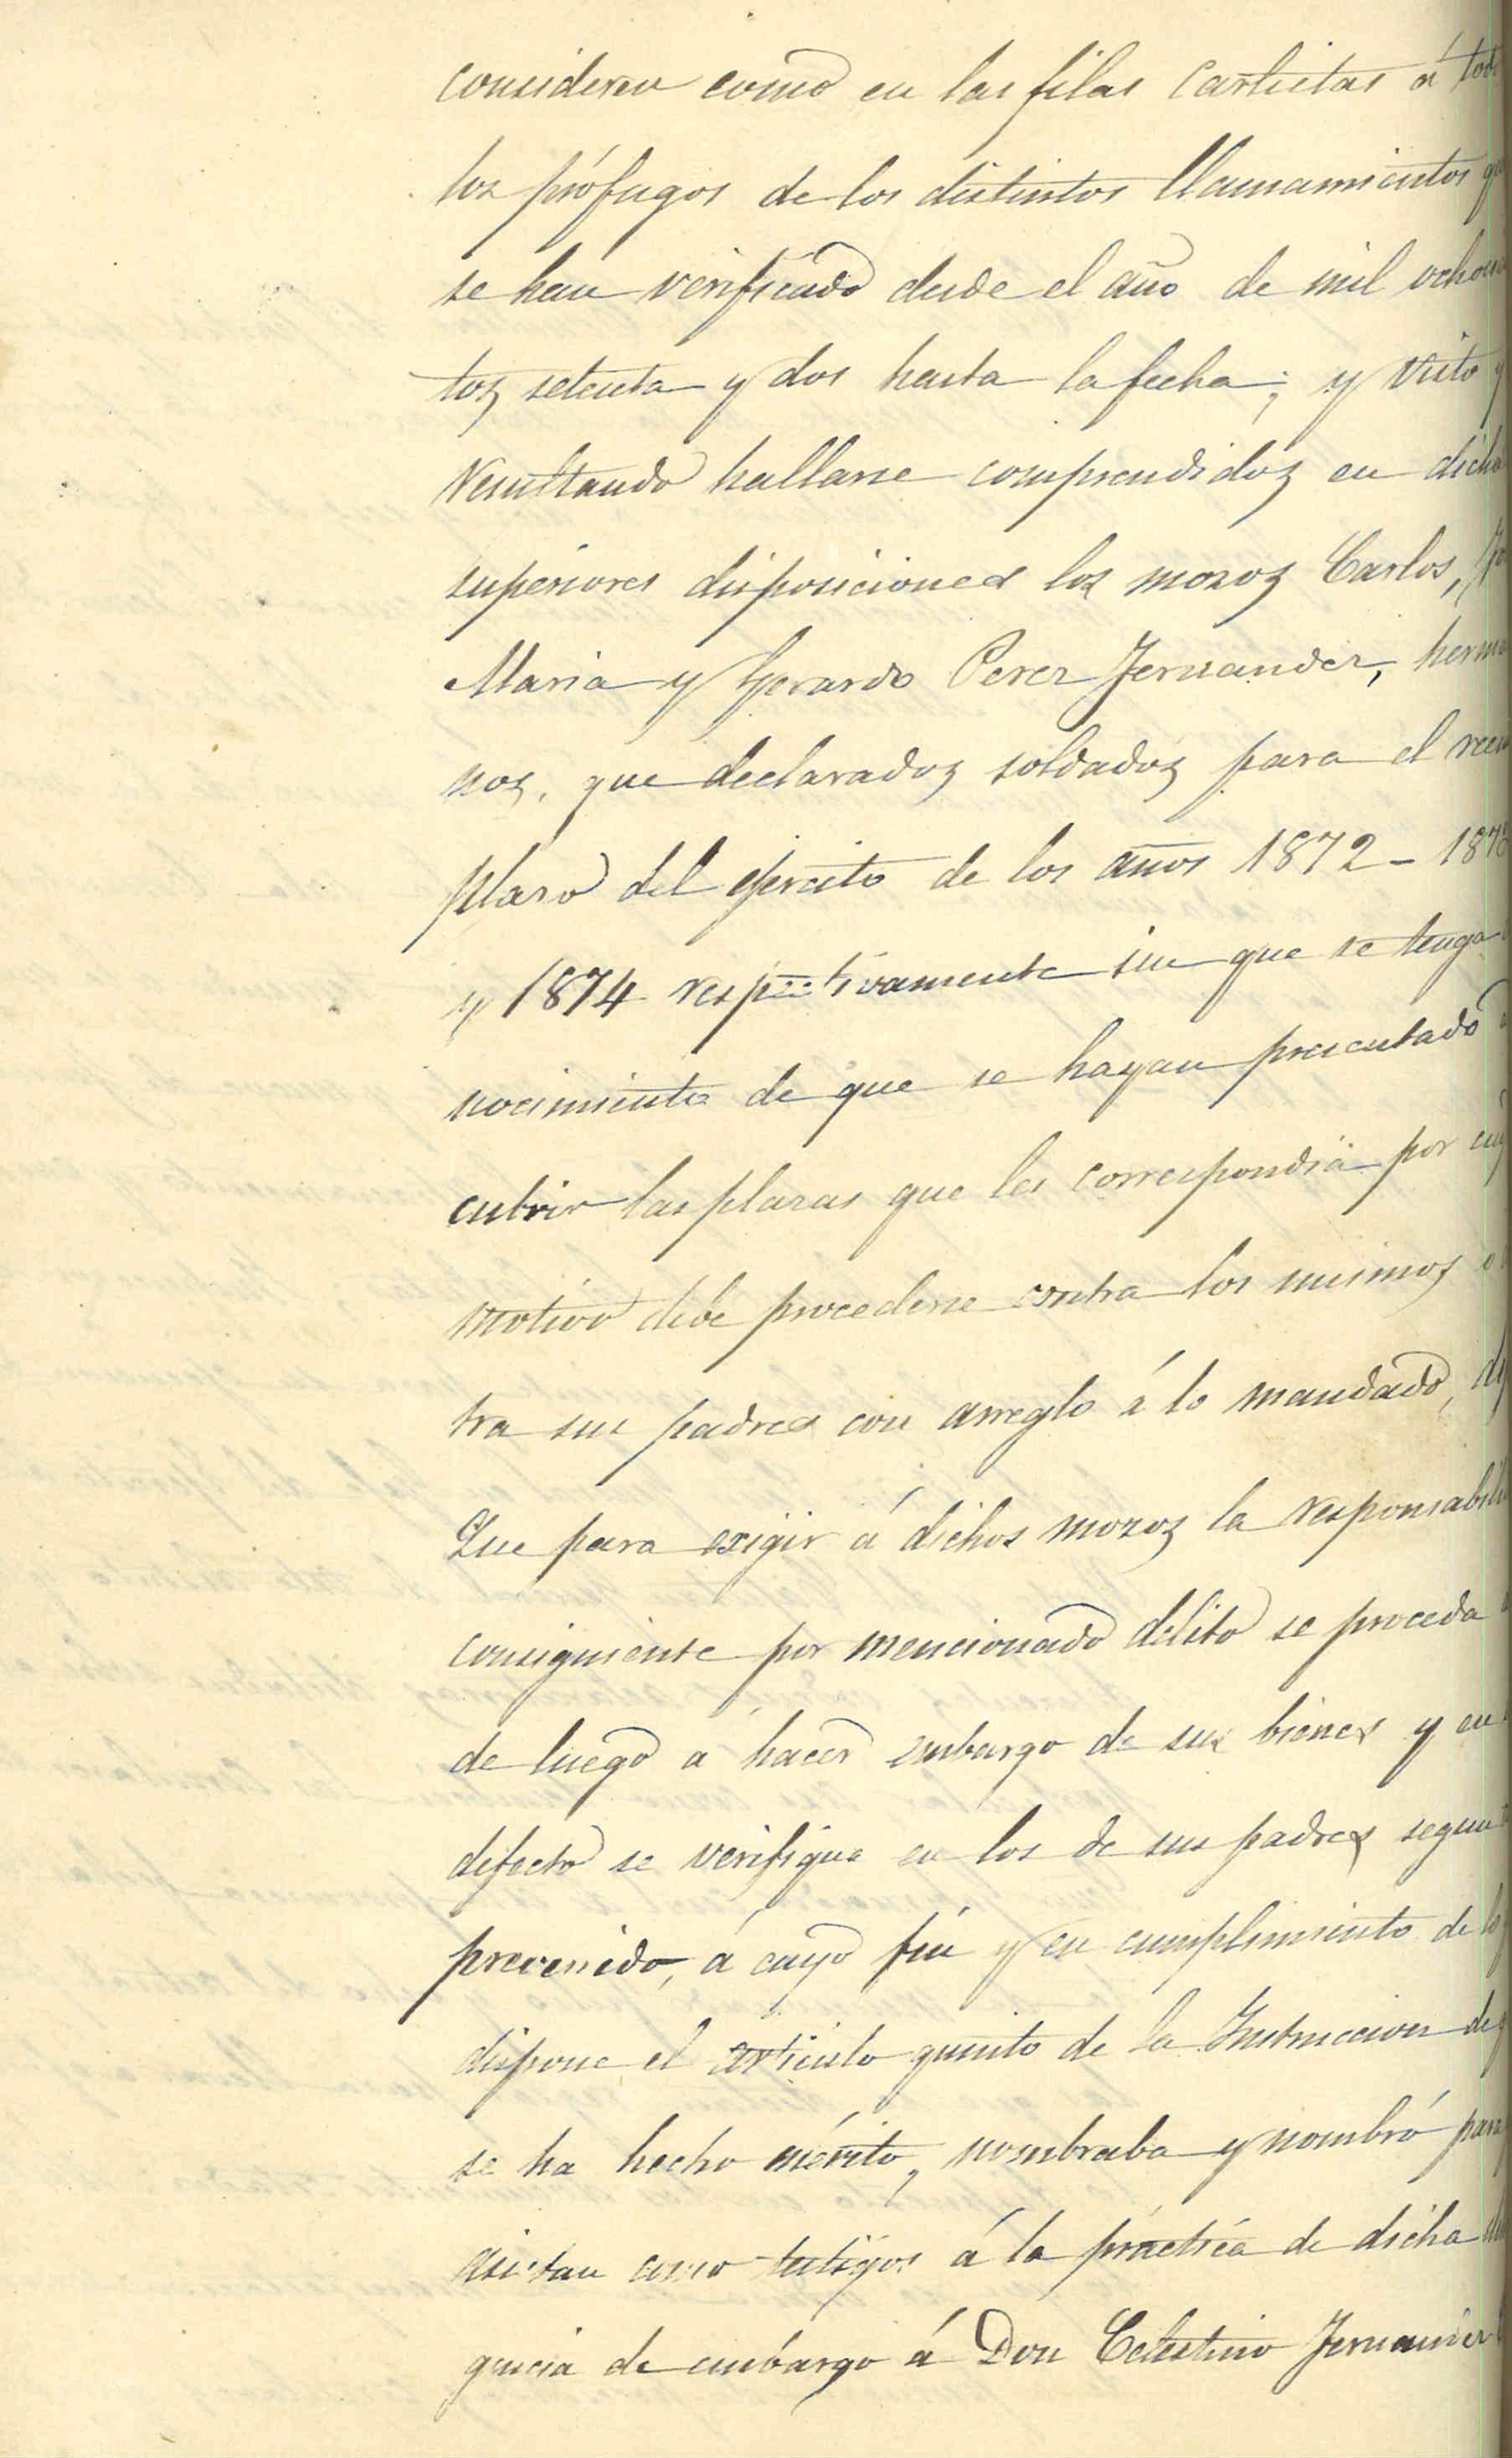 consideren como en las filas Carlistas á tod
los prófugos de los distintos llamamientos q
se han verificado desde el año de mil ochoci
tos setenta y dos hasta la fecha; y visto y
Resultando hallarse comprendidos en dicha
superiores disposiciones los mozos Carlos,
Maria y Gerardo Perez Fernandez, herma
nos, que declarados soldados para el reem
plazo del ejercito de los años 1872 - 187
y 1874 respectivamente sin que se tenga
nocimiento de que se hayan presentado
cubrir las plazas que les correspondia por cuy
motivo debe procederse contra los mismos
tra sus padres con arreglo á lo mandado, di
Que para exigir á dichos mozos la responsabili
consiguiente por mencionado delito se proceda
de luego á hacer embargo de sus bienes y en
defecto se verifique en los de sus padres segun
prevenido, á cuyo fin y en cumplimiento de lo
dispone el artículo quinto de la Instruccion de q
se ha hecho mérito, nombraba y nombró para
asistan como testigos á la práctica de dicha
gencia de embargo á Don Celestino Fernandez